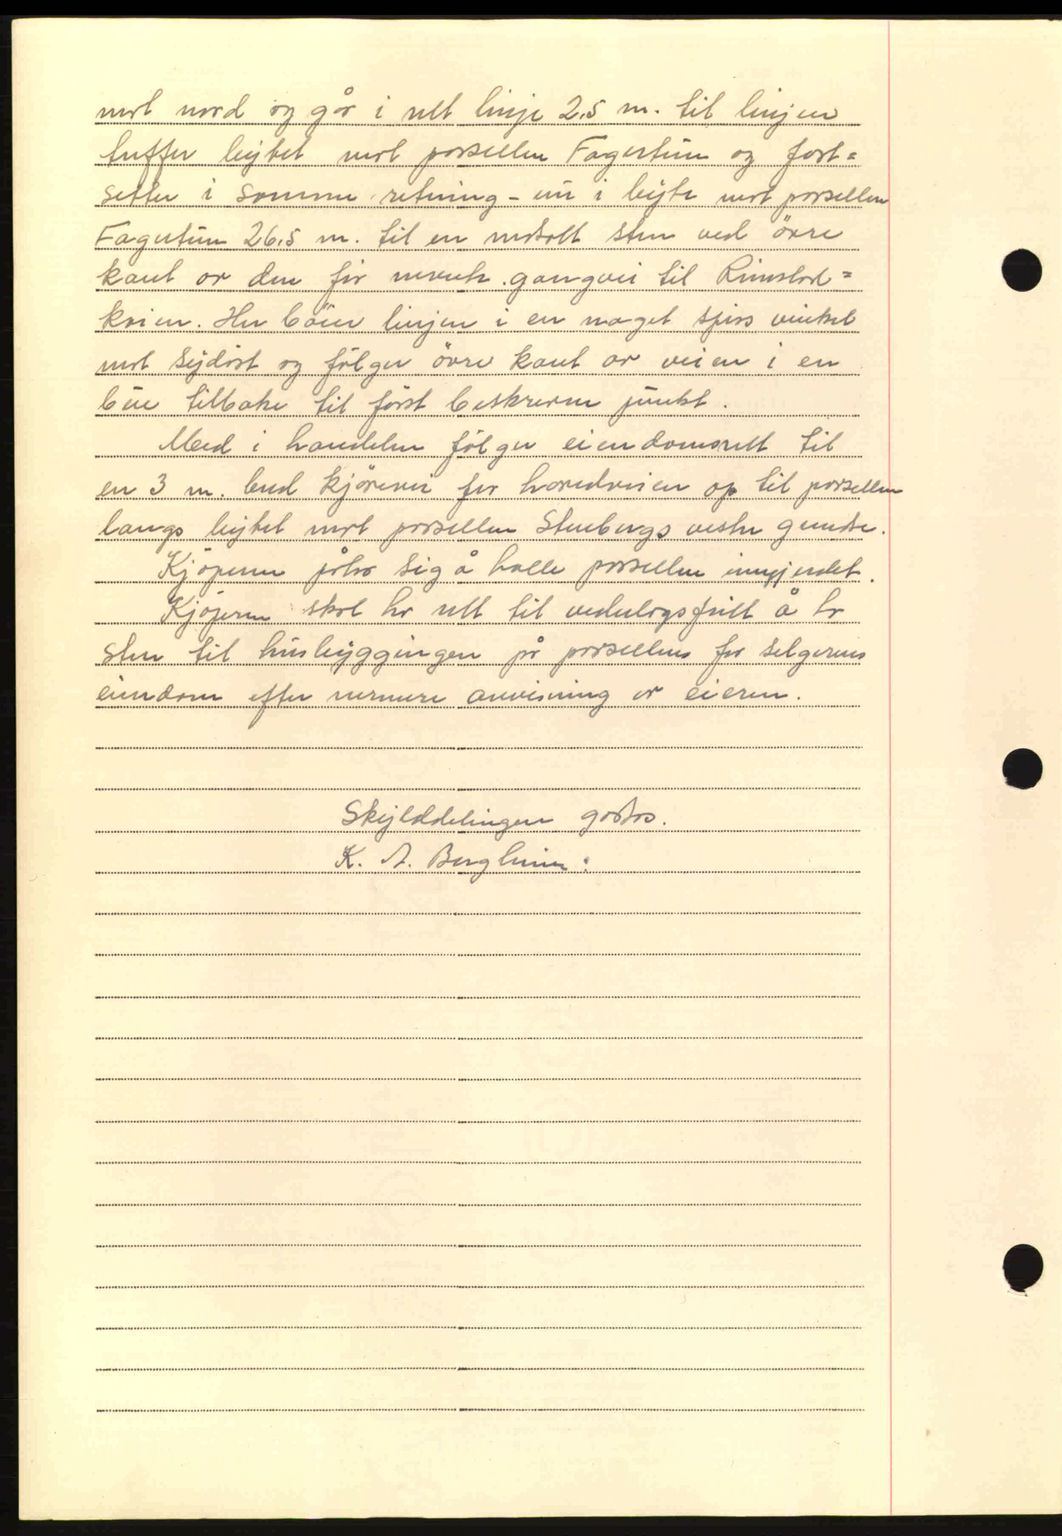 mot nord og går i rett linje 2,5 m. til linjen
treffer byttet mot parsellen Fagertun og fort=
setter i samme retning - nu i bytte mot parsellen
Fagertun 26,5 m. til en nedsatt sten ved övre
kant av den för nevnte gangvei til
Her böier linjen i en noget spiss vinkel
mot sydöst og fölger övre kant av veien i en
bue tilbake til först beskrevne punkt.
Med i handelen fölger eiendomsrett til
en 3 m. bred kjörevei fra hovedveien op til parsellen
langs byttet mot parsellen Stenbergs vestre grense.
Kjöperen påtar sig å holde parsellen inngjerdet.
Kjöperen skal ha rett til vederlagsfritt å ta
sten til husbyggingen på parsellens fra selgerens
eiendom efter nermere anvisning av eieren.
Skylddelingen godtas.
K. A. Berg